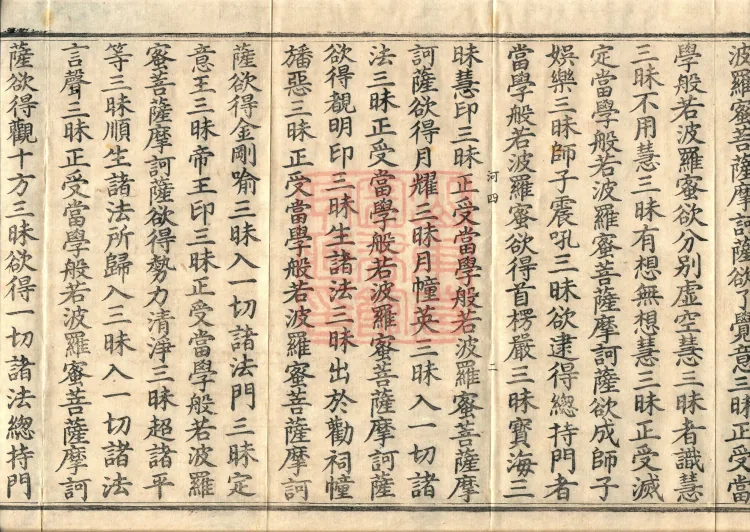 波羅蜜菩薩摩訶薩欲了覺意三昧正受當
學般若波羅蜜欲分別虛空慧三昧者識慧
三昧不用慧三昧有想無想慧三昧正受滅
定當學般若波羅蜜菩薩摩訶薩欲成師子
娛樂三昧師子震吼三昧欲逮得總持門者
當學般若波羅蜜欲得首楞嚴三昧寶海三
河四
二
昧慧印三昧正受當學般若波羅蜜菩薩摩
訶薩欲得月耀三昧月幢英三昧入一切諸
法三昧正受當學般若波羅蜜菩薩摩訶薩
欲得覩明印三昧生諸法三昧出於勸祠幢
旛惡三昧正受當學般若波羅蜜菩薩摩訶
薩欲得金剛喻三昧入一切諸法門三昧定
意王三昧帝王印三昧正受當學般若波羅
蜜菩薩摩訶薩欲得勢力清淨三昧超諸平
等三昧順生諸法所歸入三昧入一切諸法
言聲三昧正受當學般若波羅蜜菩薩摩訶
薩欲得觀十方三昧欲得一切諸法總持門